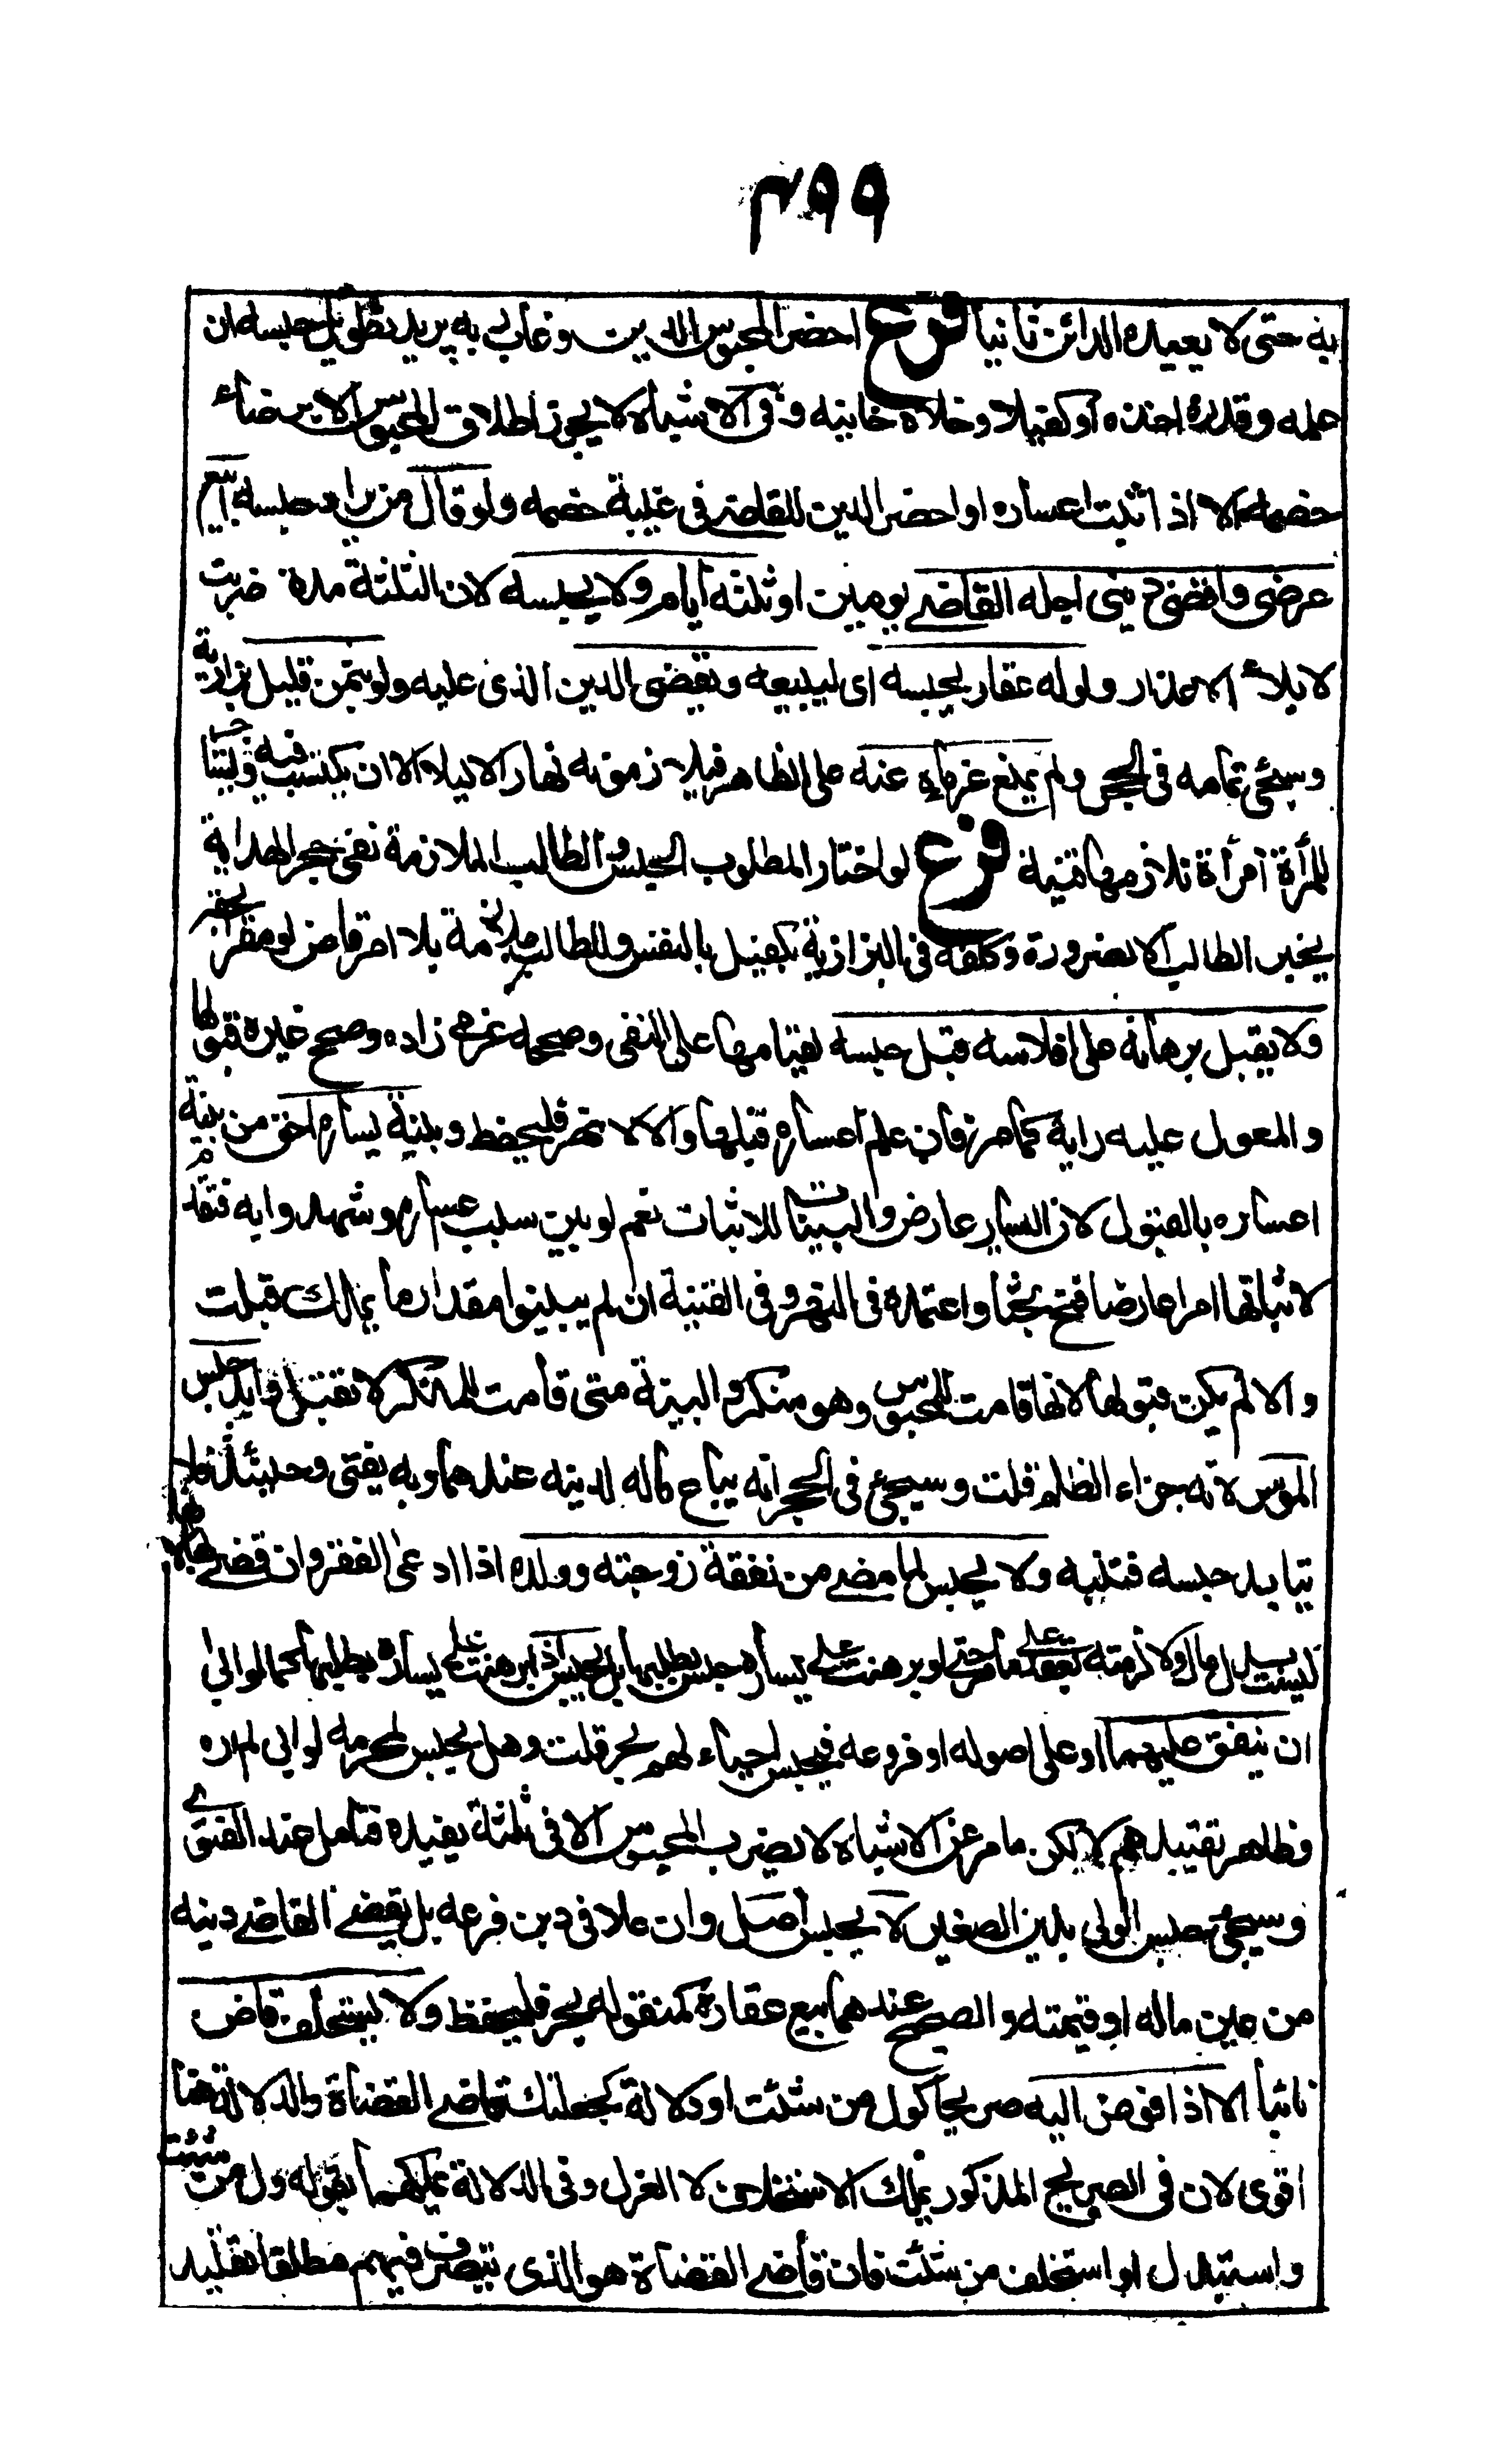 ٣٩٩
به حتى لا يعيده الدائن ثانيا فرع احضر المحبوس الدين وغاب ربه يريد تطويل حبسه ان
علمه وقدره اخذه او كفيلا وخلاه خانيه وفى الاشباه لا يجوز اطلاق المحبوس الا برضاء
خصمه الا اذا ثبت اعساره او احضر الدين للقاضى فى غيبة خصمه ولو قال من يراد حبسه ابيع
عرضى واقضى دينى اجله القاضى يومين او ثلثه ايام ولا يحبسه لان الثلثة مدة ضربت
لابلاء الاعذار ولو له عقار يحبسه اى ليبيعه ويقضى الدين الذى عليه ولو بثمن قليل بزازية
وسيجئ تمامه فى الحجر ولم يمنع غرماءه عنه على الظاهر فيلازمونه نهارا لا ليلا الا ان يكتسب فيه ويستأجر
للمرأة امرأة تلازمها قنيه فرع لو اختار المطلوب الحبس والطالب الملازمة ففى حجر الهداية
يخير الطالب الا لضرورة وكلفه فى البزازية بكفيل بالنفس وللطالب ملازمة بلا امر قاض لو مقرا بحقه
ولا يقبل برهانه على افلاسه قبل حبسه لقيامها على النفى وصححه عزمى زاده وصحح غيره قبولها
والمعول عليه رايه كما مر فان علم اعساره قبلها والا لا نهر فليحفظ وبينة يساره احق من بينة
اعساره بالقبول لان اليسار عارض والبينات للاثبات نعم لو بين سبب عساره وشهدوا به فتقدم
لاثباتها امرا عارضا فتح بحثا واعتمده فى النهر وفى القنية ان لم يبينوا مقدار ما يملك قبلت
والا لم يكن قبولها لانها قامت للمحبوس وهو منكر والبينة متى قامت للمنكر لا تقبل وابد حبس
الموسر لانه جزاء الظلم قلت وسيجئ فى الحجر انه يباع ماله لدينه عندهما وبه يفتى وحينئذ فلا
يتابد حبسه فتنبه ولا يحبس لما مضى من نفقة زوجته وولده اذا ادعى الفقر وان قضى بها لانها
ليست بدل مال ولا لزمته بعقد على ما مر حتى لو برهنت على يساره حبس بطلبها بل يحبس اذا برهنت على يساره بطلبها كما لو ابى
ان ينفق عليهما او على اصوله او فروعه فيحبس احياء لهم بحر قلت وهل يحبس لمحرمه لو ابى لم اره
وظاهر تقييدهم لا لكن ما مر عن الاشباه لا يضرب المحبوس الا فى ثلثة يفيده فتامل عند الفتوى
وسيجئ حبس الولى بدين الصغير لا يحبس اصل وان علا فى دين فرعه بل يقضى القاضى دينه
من عين ماله او قيمته والصحيح عندهما بيع عقاره كمنقوله بحر فليحفظ ولا يستخلف قاض
نائبا الا اذا فوض اليه صريحا كول من شئت او دلالة كجعلتك قاضى القضاة والدلالة هنا
اقوى لان فى الصريح المذكور يملك الاستخلاف لا العزل وفى الدلالة يملكهما بقوله ول من شئت
واستبدل او استخلف من شئت فان قاضى القضاة هو الذى يتصرف فيهم مطلقا تقليد